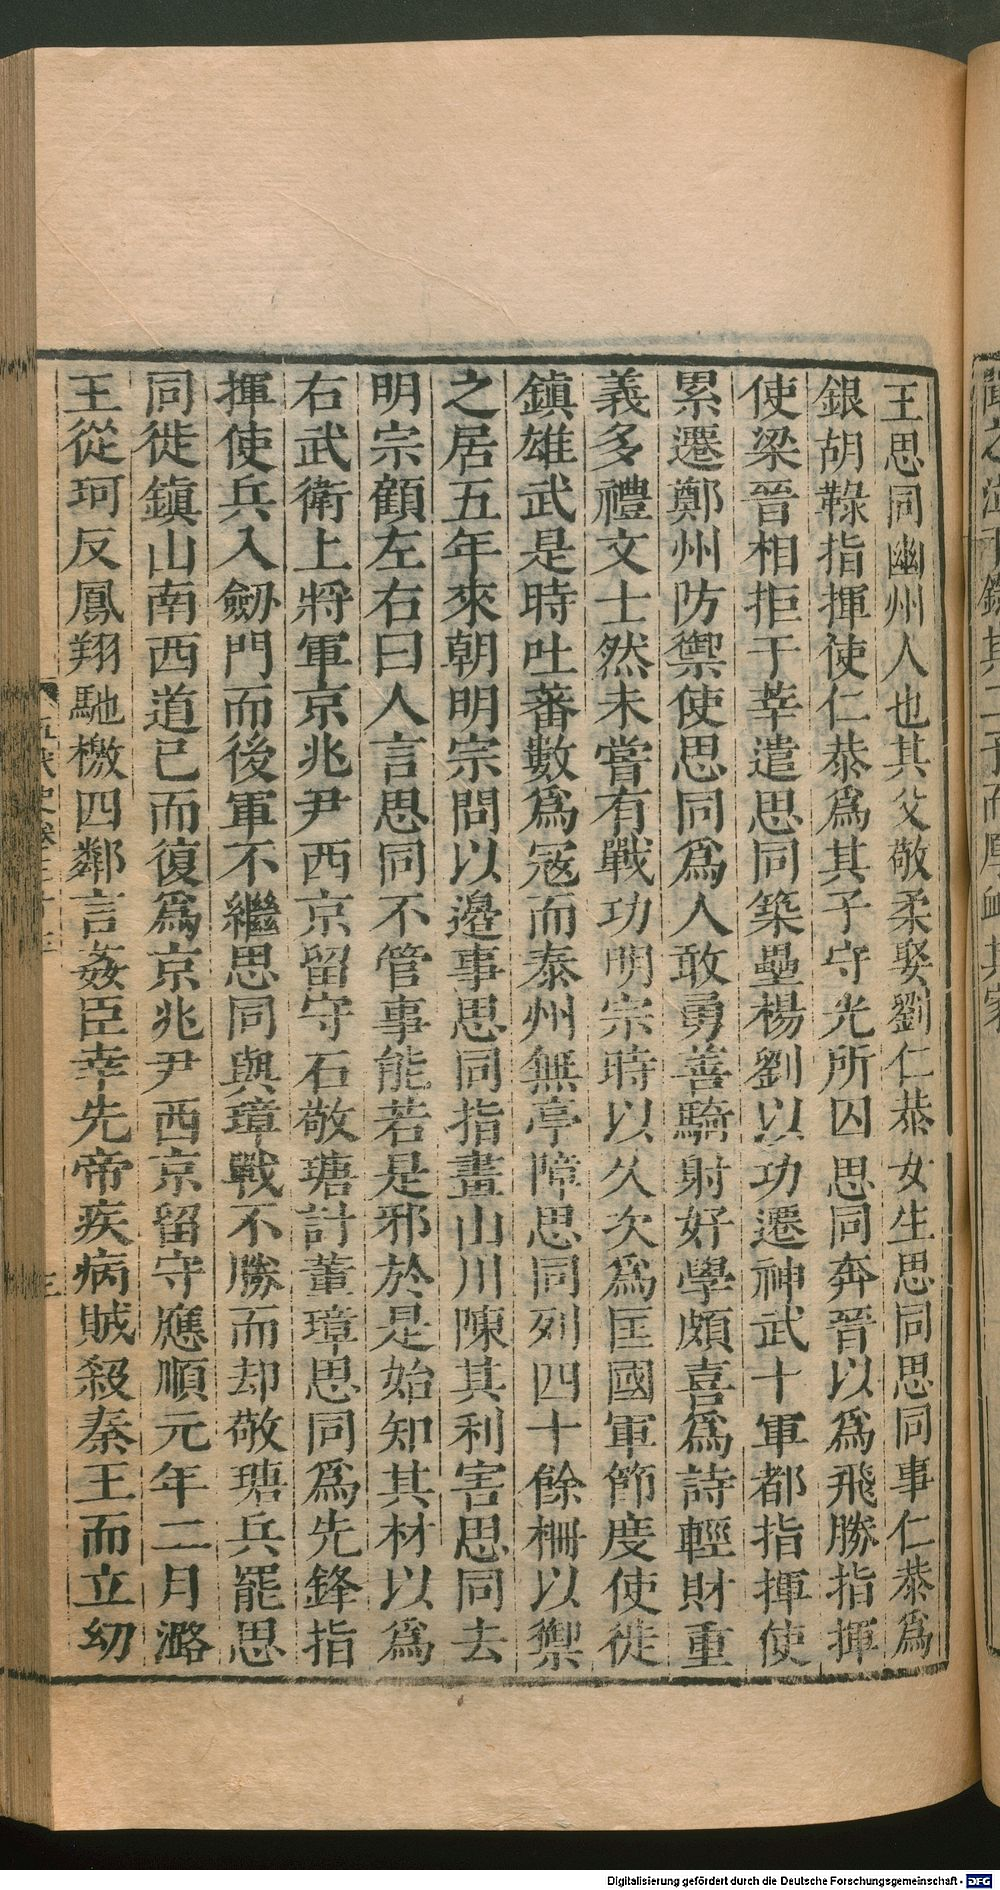 王思同幽州人也其父敬柔娶劉仁恭女生思同思同事仁恭爲
銀胡䩮指揮使仁恭爲其子守光所囚思同奔晉以爲飛勝指揮
使梁晉相拒于莘遣思同築壘楊劉以功遷神武十軍都指揮使
累遷鄭州防禦使思同爲人敢勇善騎射好學頗喜爲詩輕財重
義多禮文士然未嘗有戰功明宗時以久次爲匡國軍節度使徙
鎮雄武是時吐蕃數爲寇而泰州無亭障思同列四十餘柵以禦
之居五年來朝明宗問以邊事思同指畫山川陳其利害思同去
明宗顧左右曰人言思同不管事能若是邪於是始知其材以爲
右武衛上將軍京兆尹西京留守石敬瑭討董璋思同爲先鋒指
揮使兵入劒門而後軍不繼思同與璋戰不勝而却敬瑭兵罷思
同徙鎮山南西道已而復爲京兆尹西京留守應順元年二月潞
王從珂反鳳翔馳檄四鄰言姦臣幸先帝疾病賊殺秦王而立幼
Digitalisierung gefördert durch die Deutsche Forschungsgemeinschaft - DFG